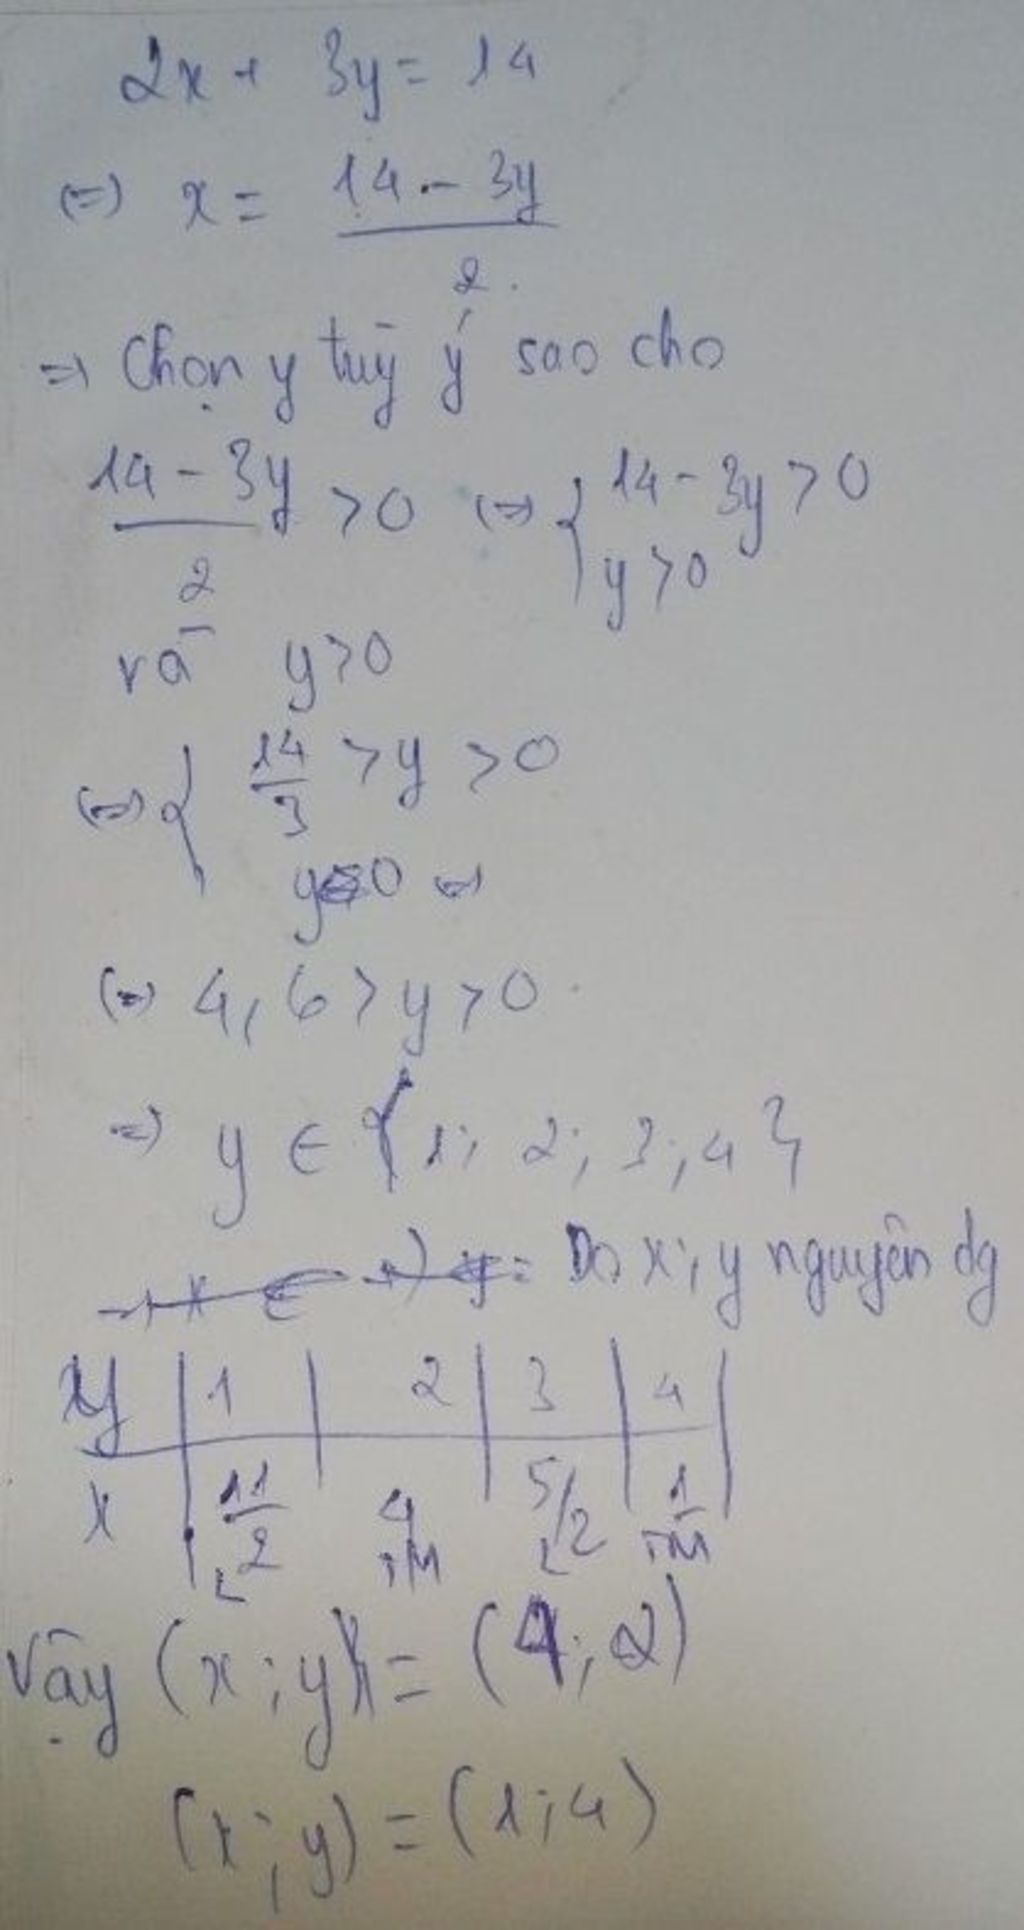 2x + 3y = 14
(=) x = 14 - 3y / 2
=> Chọn y tuỳ ý sao cho
14 - 3y / 2 > 0 (=) { 14 - 3y > 0
y > 0
và y > 0
(=) { 14/3 > y > 0
y 0 =>
(=) 4,6 > y > 0
=> y ∈ { 1; 2; 3; 4 }
Do x; y nguyên dg
y | 1 | 2 | 3 | 4 |
x | 11/2 | 4 | 5/2 | 1
L TM L TM
Vậy (x; y) = (4; 2)
(x; y) = (1; 4)